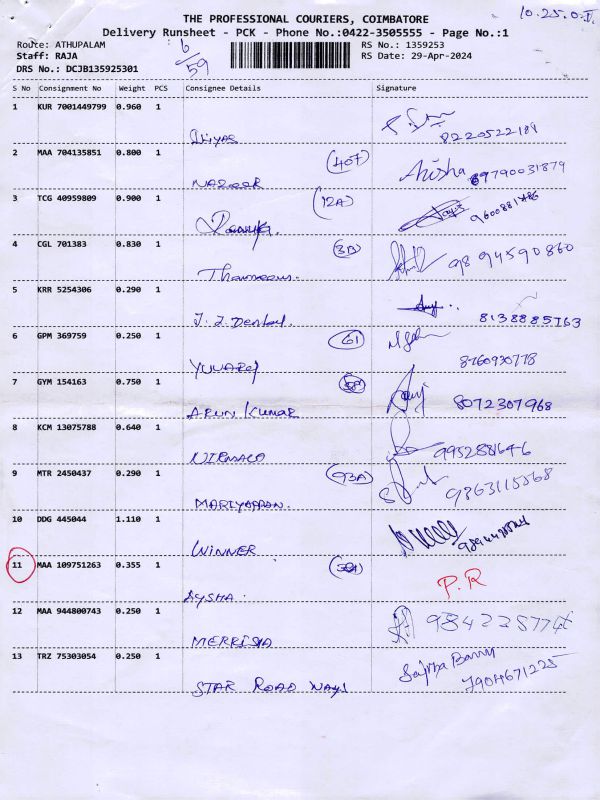 10.25.
THE PROFESSIONAL COURIERS, COIMBATORE
Delivery Runsheet - PCK - Phone No.:0422-3505555 - Page No.:1
Route: ATHUPALAM
6/59
RS No.: 1359253
Staff: RAJA
RS Date: 29-Apr-2024
DRS No.: DCJB135925301
S No Consignment No Weight PCS Consignee Details Signature
1 KUR 7001449799 0.960 1
Iliyas 8220522189
2 MAA 704135851 0.800 1
NAZEER (407) Anisha 9790031879
3 TCG 40959809 0.900 1
(12A)
4 CGL 701383 0.830 1
3B 98 94590860
5 KRR 5254306 0.290 1
J.J. Dental 8138885763
6 GPM 369759 0.250 1
61
YUVARAJ 8760930778
7 GYM 154163 0.750 1
ARUN KUMAR 8072307968
8 KCM 13075788 0.640 1
995288646
9 MTR 2450437 0.290 1
93A
MARIYAPPAN. 9863115568
10 DDG 445044 1.110 1
WINNER
11 MAA 109751263 0.355 1
P.R
AYSHA.
12 MAA 944800743 0.250 1
MERRISHA
13 TRZ 75303054 0.250 1
STAR ROAD WAYS 7904671225